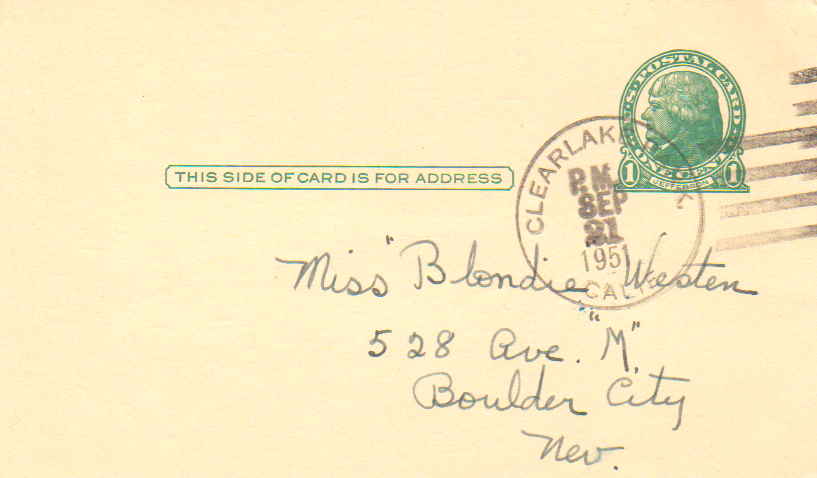 U.S. POSTAL CARD
1 ONE CENT 1
JEFFERSON
THIS SIDE OF CARD IS FOR ADDRESS
CLEARLAKE
P.M.
SEP
21
1951
CALIF
Miss "Blondie" Westen
528 Ave. "M"
Boulder City
Nev.